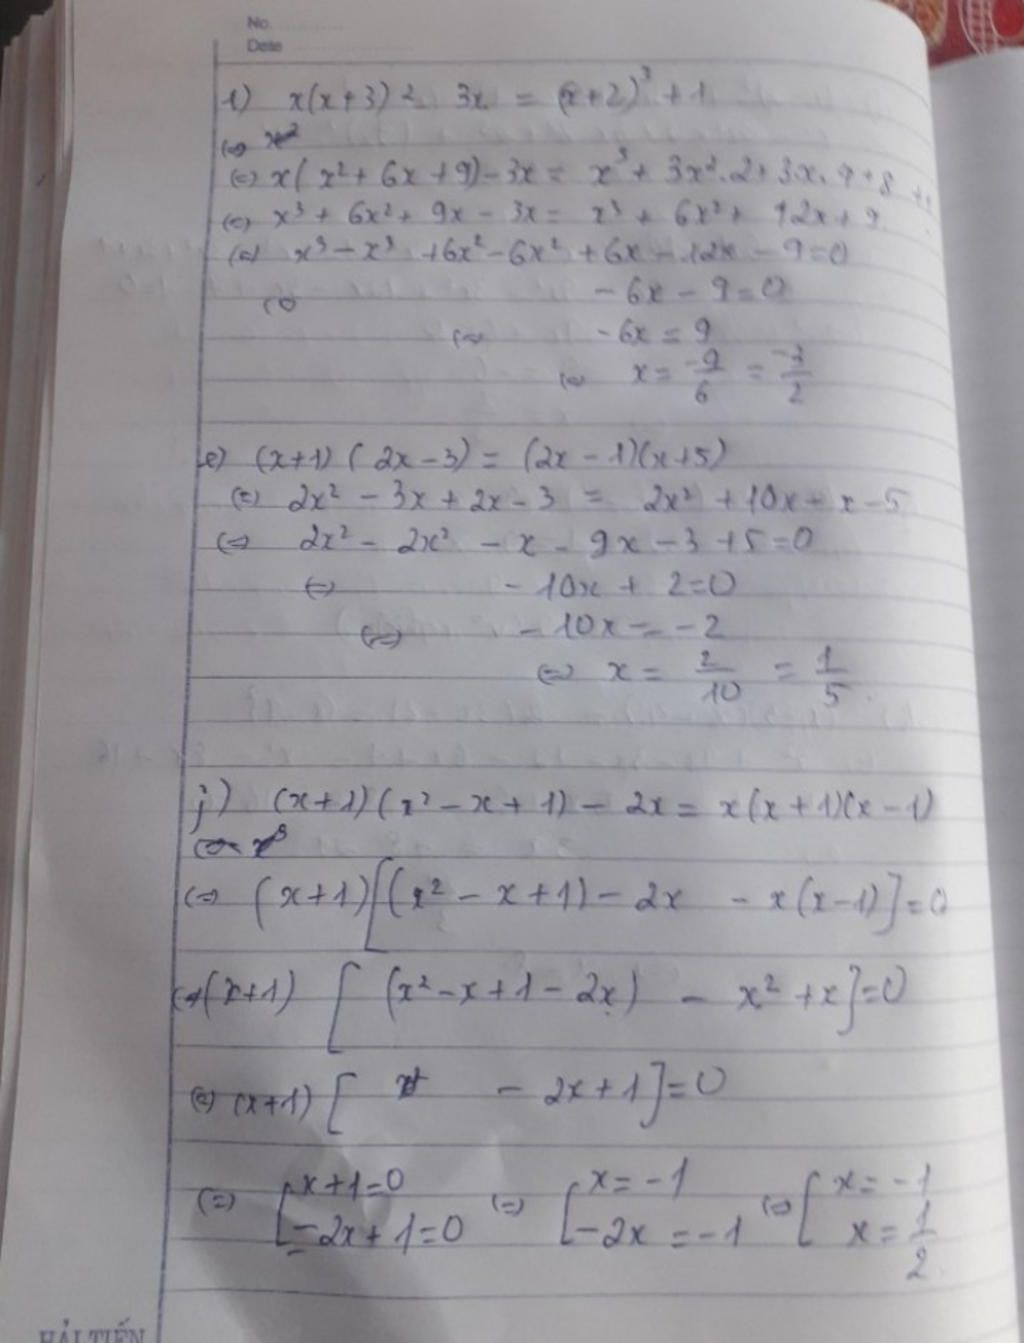 No.
Date
1) x(x+3)2 3x = (x+2)³ + 1
(=) x²
(=) x(x² + 6x + 9) - 3x = x³ + 3x².2 + 3x.4 + 8 + 1
(=) x³ + 6x² + 9x - 3x = x³ + 6x² + 12x + 9
(=) x³ - x³ + 6x² - 6x² + 6x - 12x - 9 = 0
(=) - 6x - 9 = 0
(=) - 6x = 9
(=) x = -9/6 = -3/2
e) (x+1)(2x-3) = (2x-1)(x+5)
(=) 2x² - 3x + 2x - 3 = 2x² + 10x - x - 5
(=) 2x² - 2x² - x - 9x - 3 + 5 = 0
(=) - 10x + 2 = 0
(=) - 10x = -2
(=) x = 2/10 = 1/5
j) (x+1)(x² - x + 1) - 2x = x(x+1)(x-1)
(=) x³
(=) (x+1)[(x² - x + 1) - 2x - x(x-1)] = 0
(=) (x+1) [(x² - x + 1 - 2x) - x² + x] = 0
(=) (x+1) [ - 2x + 1] = 0
(=) [x+1=0 (=) [x = -1 (=) [x = -1
-2x + 1 = 0 -2x = -1 x = 1/2
HẢI TIẾN